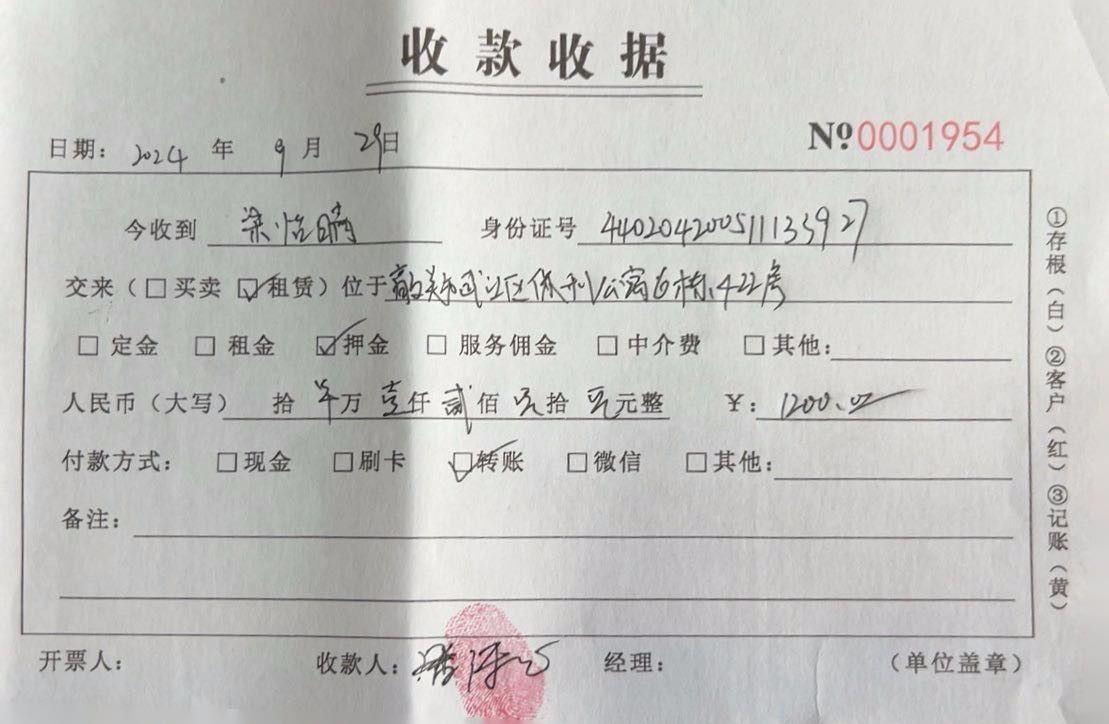 收款收据
日期: 2024 年 9 月 29日
№ 0001954
今收到 梁怡晴 身份证号 440204200511133927
交来(□买卖 ☑租赁)位于 武江区保利公寓 栋422房
□定金 □租金 ☑押金 □服务佣金 □中介费 □其他:
人民币(大写) 拾 万 壹仟 贰佰 零拾 零元整 ¥: 1200.00
付款方式: □现金 □刷卡 ☑转账 □微信 □其他:
备注:
开票人: 收款人: 经理: (单位盖章)
①存根(白)②客户(红)③记账(黄)